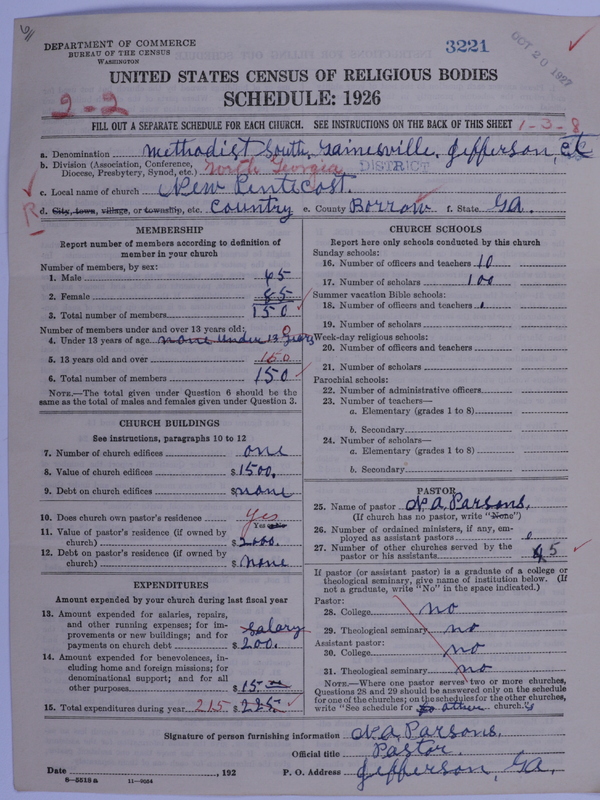 DEPARTMENT OF COMMERCE
BUREAU OF THE CENSUS
WASHINGTON
3221
OCT 20 1927
UNITED STATES CENSUS OF RELIGIOUS BODIES
SCHEDULE: 1926
2-2
FILL OUT A SEPARATE SCHEDULE FOR EACH CHURCH. SEE INSTRUCTIONS ON THE BACK OF THIS SHEET
1-3-8
a. Denomination Methodist South, Gainesville, Jefferson,
b. Division (Association, Conference, Diocese, Presbytery, Synod, etc.) North Georgia DISTRICT
c. Local name of church New Pentecost.
R
d. City, town, village, or township, etc. Country e. County Borrow f. State Ga.
MEMBERSHIP
Report number of members according to definition of member in your church
Number of members, by sex:
1. Male 65
2. Female 85
3. Total number of members 150
Number of members under and over 13 years old:
4. Under 13 years of age none under 13 years 0
5. 13 years old and over 150
6. Total number of members 150
NOTE.—The total given under Question 6 should be the same as the total of males and females given under Question 3.
CHURCH BUILDINGS
See instructions, paragraphs 10 to 12
7. Number of church edifices one
8. Value of church edifices $1500.
9. Debt on church edifices $none
10. Does church own pastor's residence yes
Yes or No
11. Value of pastor's residence (if owned by church) $2000.
12. Debt on pastor's residence (if owned by church) $None
EXPENDITURES
Amount expended by your church during last fiscal year
13. Amount expended for salaries, repairs, and other running expenses; for improvements or new buildings; and for payments on church debt salary $200.
14. Amount expended for benevolences, including home and foreign missions; for denominational support; and for all other purposes $15.00
15. Total expenditures during year 215 $225
CHURCH SCHOOLS
Report here only schools conducted by this church
Sunday schools:
16. Number of officers and teachers 10
17. Number of scholars 100
Summer vacation Bible schools:
18. Number of officers and teachers
19. Number of scholars
Week-day religious schools:
20. Number of officers and teachers
21. Number of scholars
Parochial schools:
22. Number of administrative officers
23. Number of teachers—
a. Elementary (grades 1 to 8)
b. Secondary
24. Number of scholars—
a. Elementary (grades 1 to 8)
b. Secondary
PASTOR
25. Name of pastor N. A. Parsons.
(If church has no pastor, write "None")
26. Number of ordained ministers, if any, employed as assistant pastors 0
27. Number of other churches served by the pastor or his assistants 5
If pastor (or assistant pastor) is a graduate of a college or theological seminary, give name of institution below. (If not a graduate, write "No" in the space indicated.)
Pastor:
28. College no
29. Theological seminary no
Assistant pastor:
30. College no
31. Theological seminary no
NOTE.—Where one pastor serves two or more churches, Questions 28 and 29 should be answered only on the schedule for one of the churches; on the schedules for the other churches, write "See schedule for church."
Signature of person furnishing information N. A. Parsons.
Official title Pastor.
Date , 192
P. O. Address Jefferson Ga.
8-5518a
11-9054